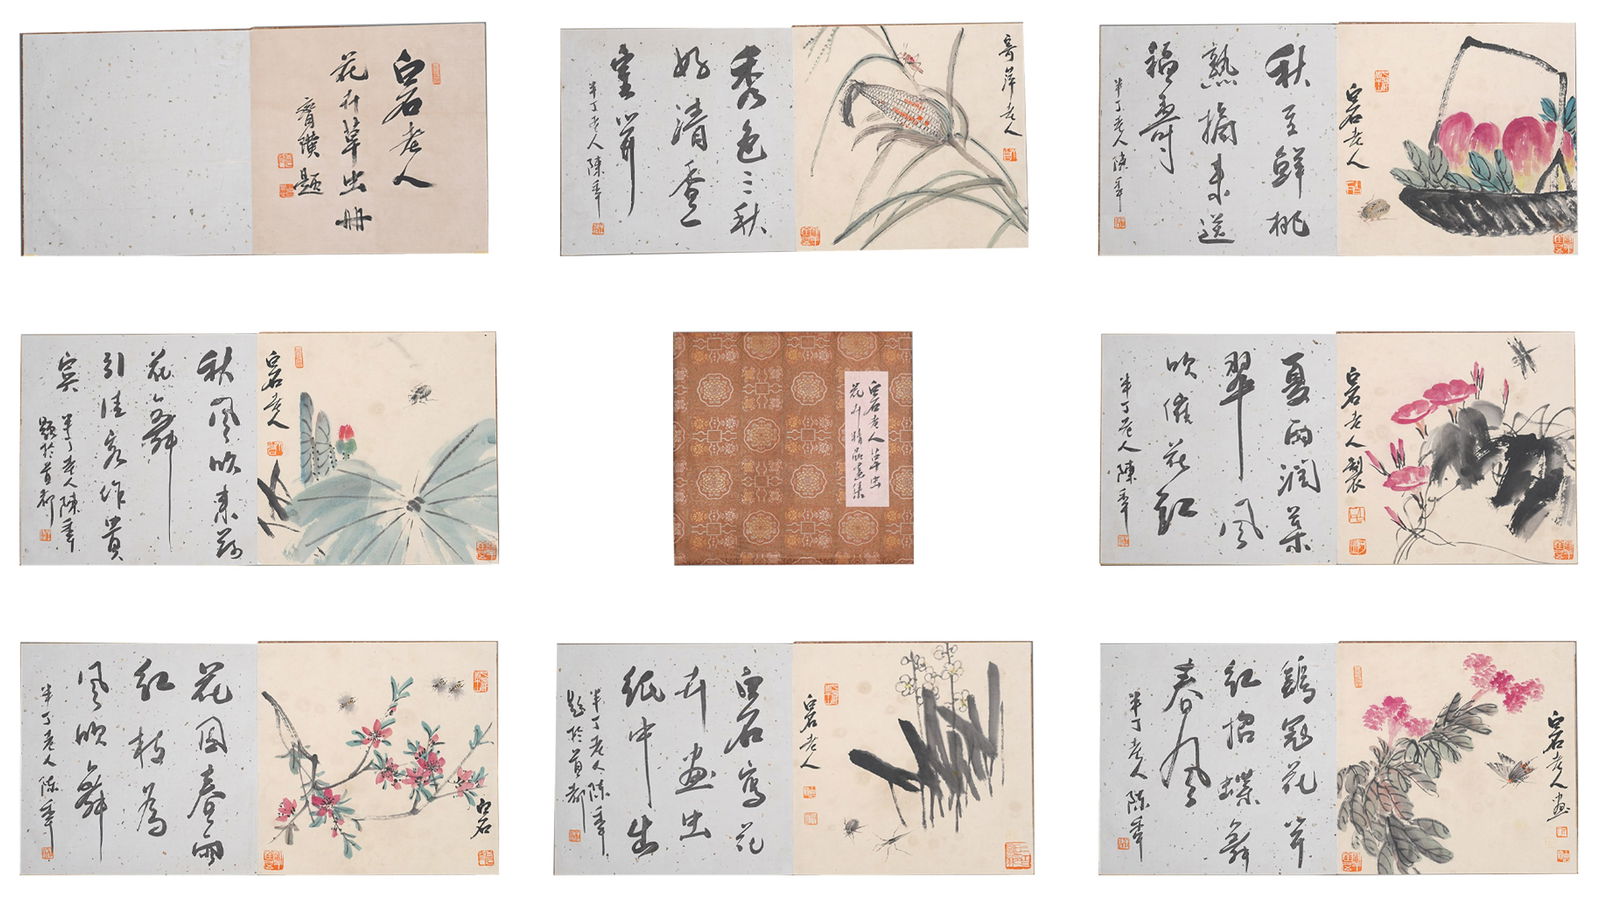 白石老人
花卉草虫册
齊璜題
寄萍老人
秀色三秋
好清香一
室前
半丁老人陳年
白石老人
秋至鮮桃
熟摘来送
福壽
半丁老人陳年
白石老人
秋風吹来荷
花舞
引佳客作貴
賓
半丁老人陳年
題於首都
白石老人草虫
花卉精品選集
白石老人製
夏雨润葉
翠風
吹催花紅
半丁老人陳年
白石
花因春雨
紅枝為
風吹舞
半丁老人陳年
白石老人
白石寫花
卉畫虫
紙中出
半丁老人陳年
題於首都
白石老人畫
鷄冠花
紅招蝶舞
春風
半丁老人陳年